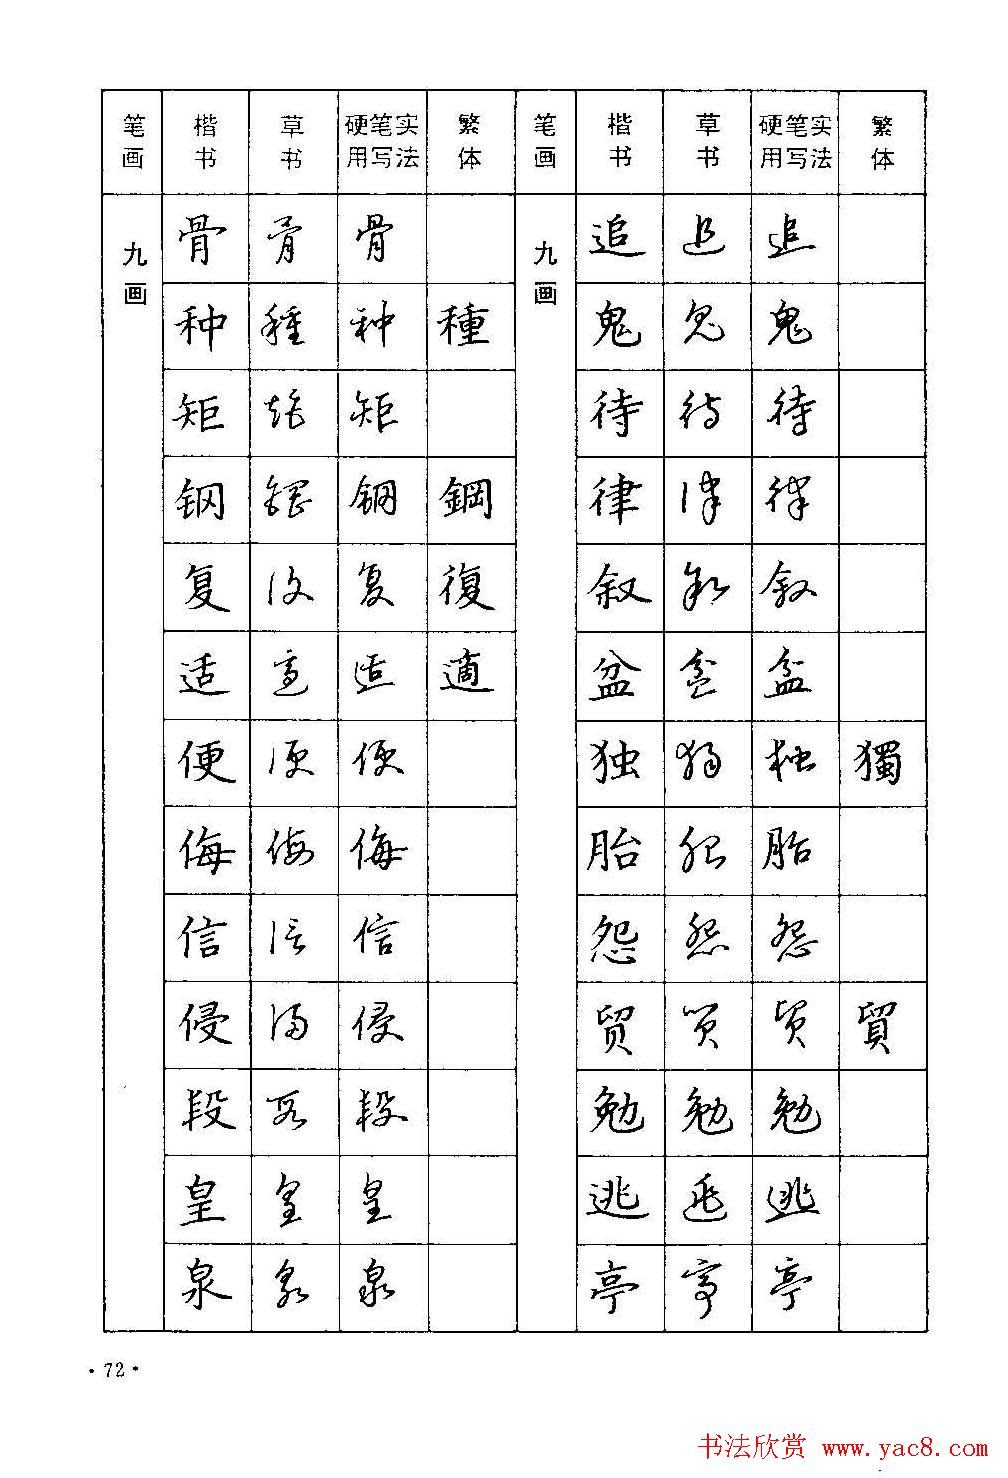 笔画 楷书 草书 硬笔实用写法 繁体 笔画 楷书 草书 硬笔实用写法 繁体
九画 骨 骨 骨 九画 追 追 追
种 種 种 種 鬼 鬼 鬼
矩 矩 矩 待 待 待
钢 鋼 钢 鋼 律 律 律
复 復 复 復 叙 叙 叙
适 適 适 適 盆 盆 盆
便 便 便 独 獨 独 獨
侮 侮 侮 胎 胎 胎
信 信 信 怨 怨 怨
侵 侵 侵 贸 贸 贸 貿
段 段 段 勉 勉 勉
皇 皇 皇 逃 逃 逃
泉 泉 泉 亭 亭 亭
·72·
书法欣赏 www.yac8.com